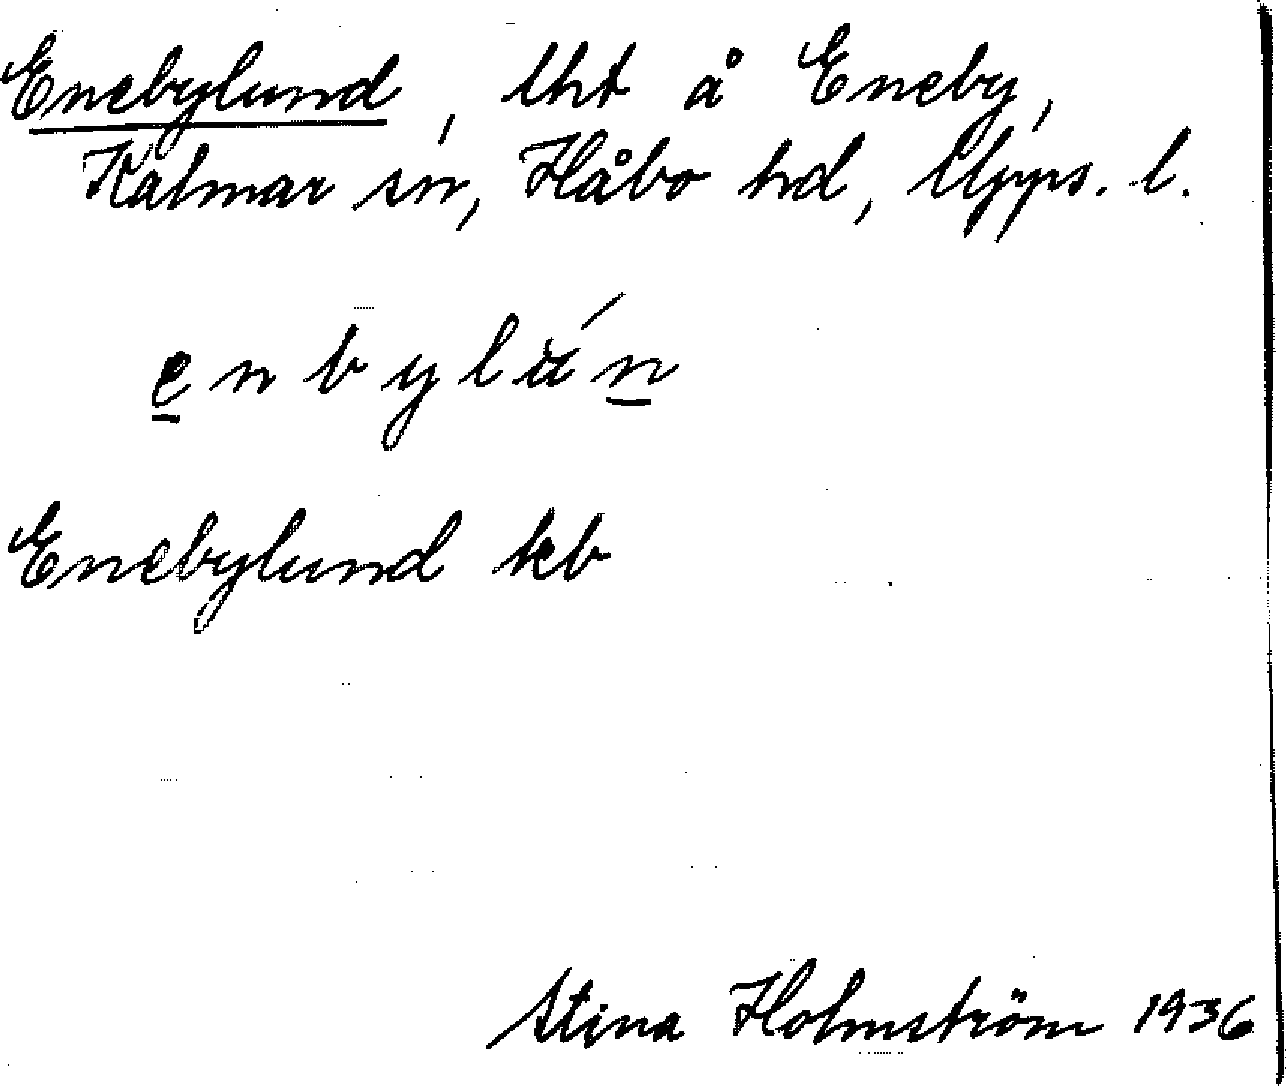 Enebylund, lht å Eneby,
Kalmar sn, Håbo hd, Upps. l.
enbylún
Enebylund kb
Stina Holmström 1936